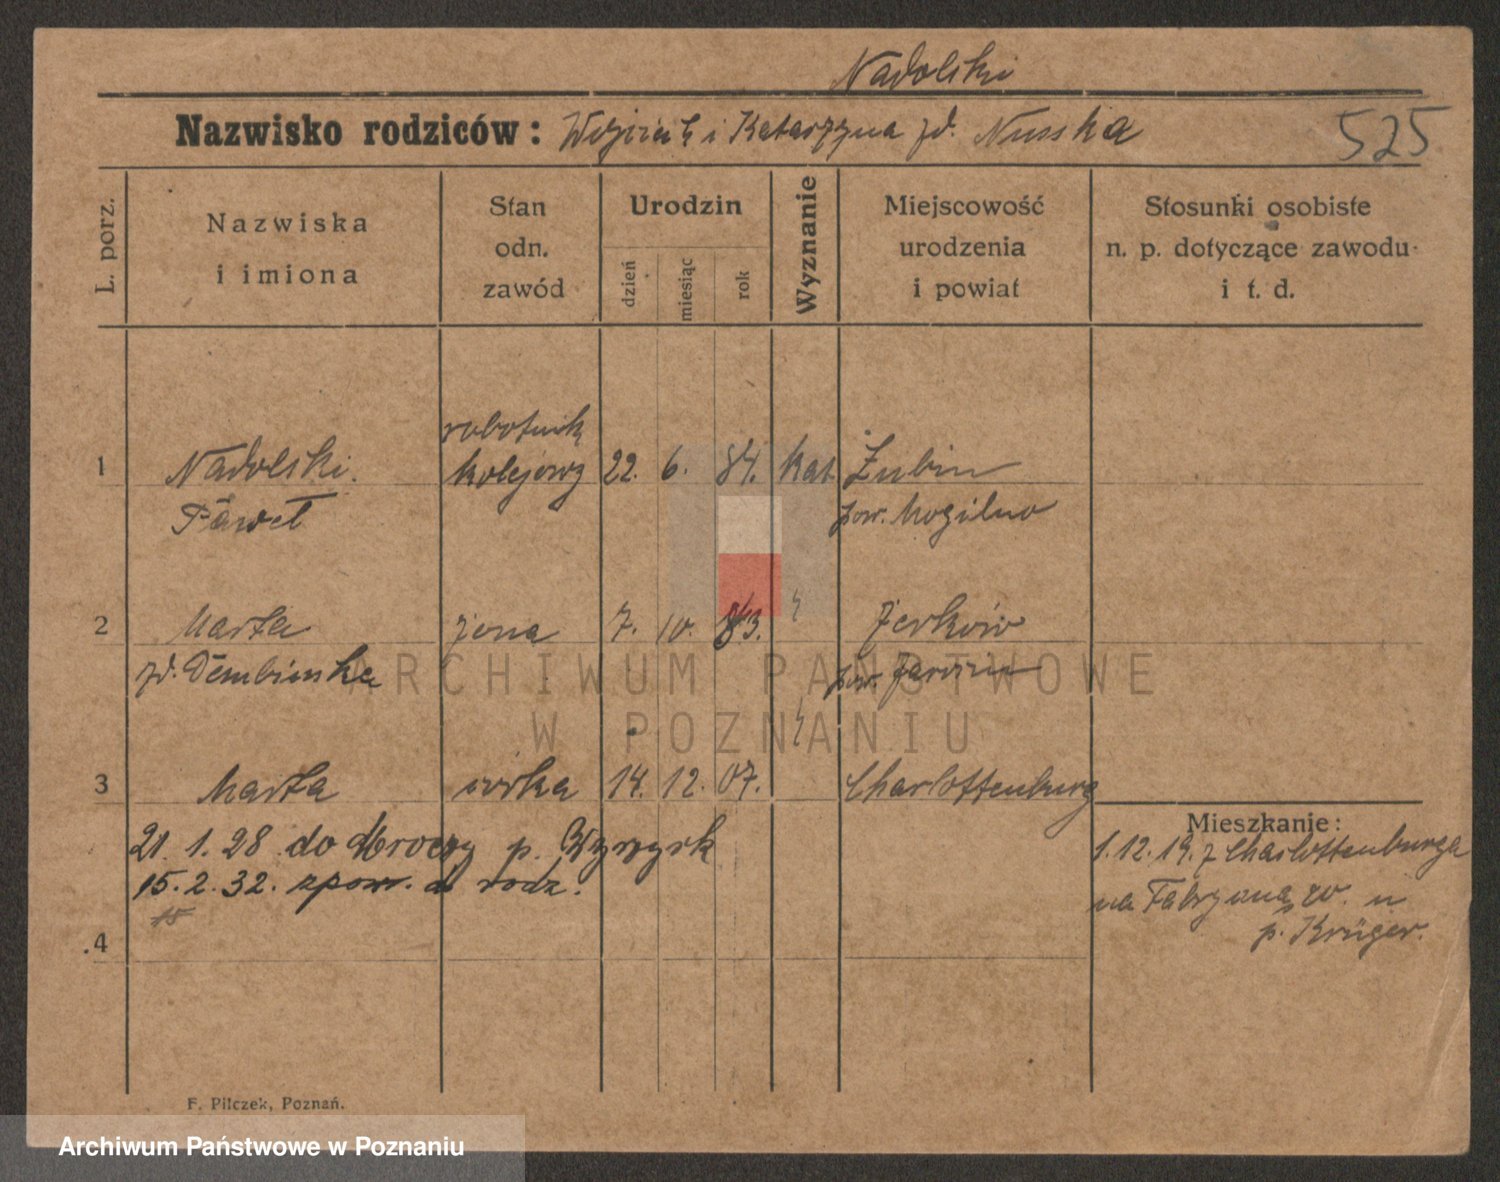 Nadolski
Nazwisko rodziców: Wojciech i Katarzyna zd. Nusska
525
L. porz.
Nazwiska i imiona
Stan odn. zawód
Urodzin
dzień
miesiąc
rok
Wyznanie
Miejscowość urodzenia i powiat
Stosunki osobiste n. p. dotyczące zawodu i t. d.
robotnik
1 Nadolski kolejowy 22. 6. 84. kat. Żubin
Paweł pow. Mogilno
2 Marta żona 7. 10. 83. Jerków
zd. Dembinska pow. Jarocin
3 Marta córka 14. 12. 07. Charlottenburg
21. 1. 28 do Mroczy p. Wyrzysk
15. 2. 32. zpow. d rodz.
15
4
Mieszkanie:
1.12.19. z Charlottenburga
na Fabryczną
p. Krüger.
F. Pilczek, Poznań.
ARCHIWUM PAŃSTWOWE
W POZNANIU
Archiwum Państwowe w Poznaniu